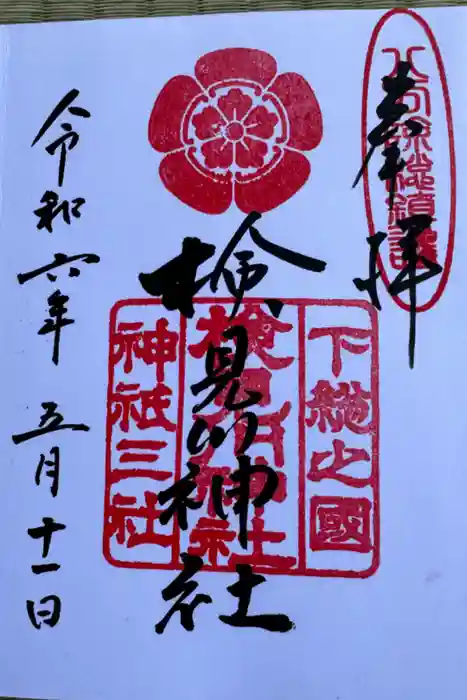 奉拝
八方除総鎮護
下総之國
検見川神社
神祇三社
検見川神社
令和六年五月十一日